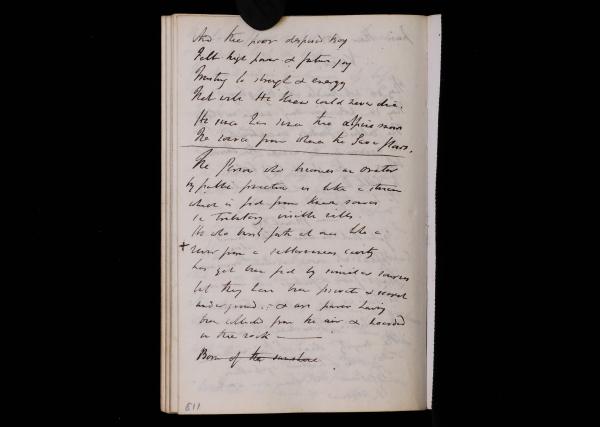 And the poor despised boy
Felt high power & future joy
Trusting to strength & energy
That with Him knew could never die.
He since has seen thro alpine snow
The source from whence the Save flows.
The Person who becomes an orator
by public practice is like a stream
which is fed from known sources
ie tributary visible rills.
He who bursts forth at once like a
+ river from a subterraneous cavity
has yet been fed by similar sources
but they have been private & secret
under ground; & are purer having
been collected from the air & hoarded
in the rock —
Born of the sunshine
611